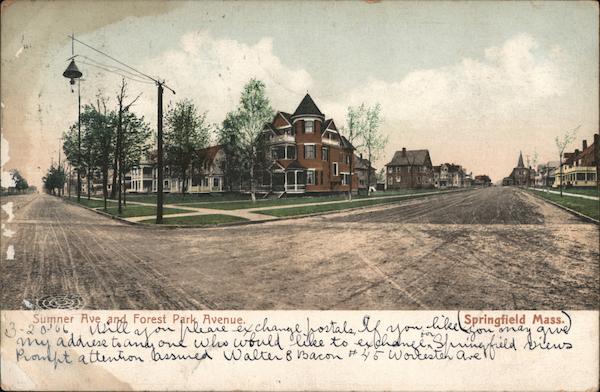 Sumner Ave and Forest Park Avenue. Springfield Mass.
3-20-06 Will you please exchange postals. If you like (you may give)
my address to any one who would like to exchange for Springfield views
Prompt attention assured Walter B Bacon # 45 Worcester Ave